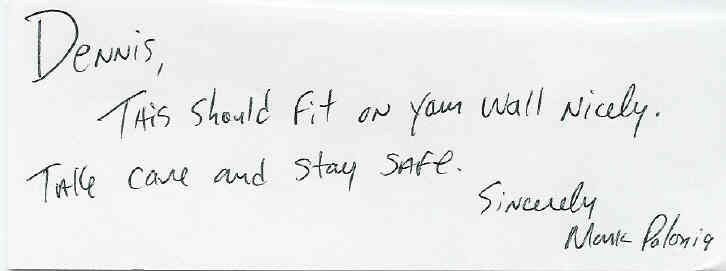 Dennis,
This should fit on your wall nicely.
Take care and stay safe.
Sincerely
Mark Polonia